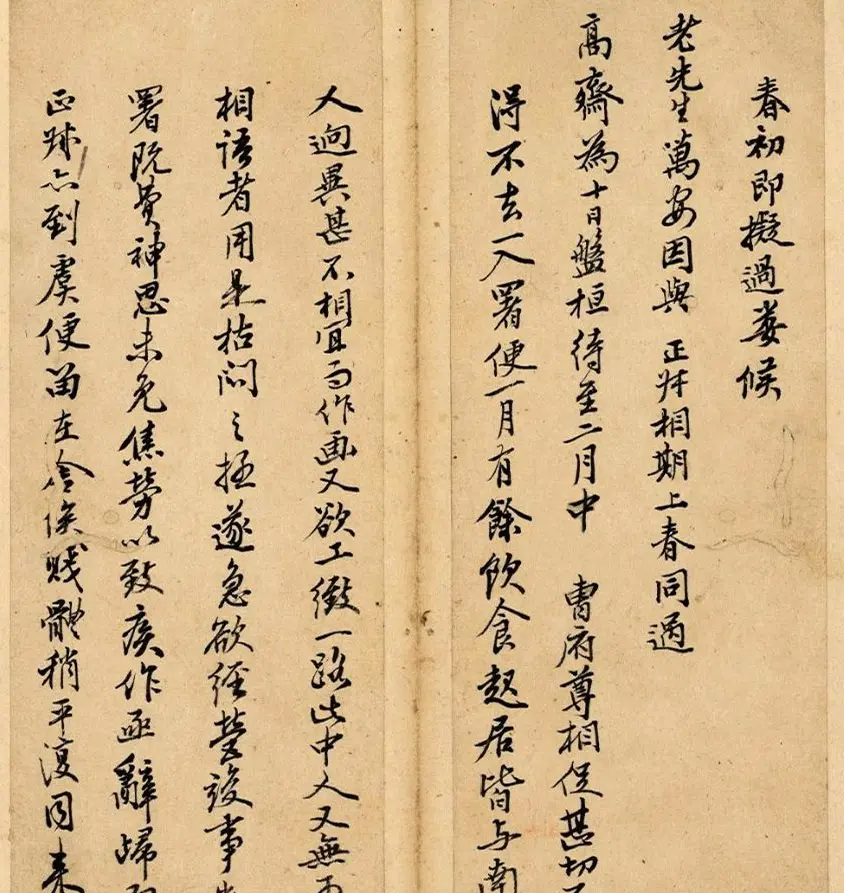 春初即擬過婁候
老先生萬安因與正叔相期上春同過
高齋為十日盤桓待至二月中曹府尊相促甚切
得不去一入署便一月有餘飲食起居皆与南
人迥異甚不相宜而作画又欲工緻一路此中人又無
相語者用是枯悶之極遂急欲經營竣事
署既費神思未免焦勞以致疾作亟辭歸
正叔亦到虞便留在舍俟賤體稍平復同来